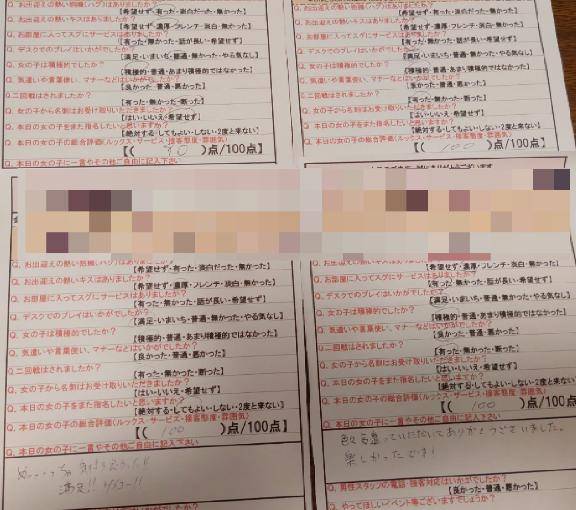 Q. お出迎えの熱いキスはありましたか？
【希望せず・濃厚・フレンチ・淡白・無かった】
Q. お部屋に入ってスグにサービスはありましたか？
【有った・無かった・話が長い・希望せず】
Q. デスクでのプレイはいかがでしたか？
【満足・いまいち・普通・無かった・やる気なし】
Q. 女の子は積極的でしたか？
【積極的・普通・あまり積極的ではなかった】
Q. 気遣いや言葉使い、マナーなどはいかがでしたか？
【良かった・普通・悪かった】
Q. 二回戦はされましたか？
【有った・無かった・断った】
Q. 女の子から名刺はお受け取りいただきましたか？
【はい・いいえ・希望せず】
Q. 本日の女の子をまた指名したいと思いますか？
【絶対する・してもよい・しない・2度と来ない】
Q. 本日の女の子の総合評価(ルックス・サービス・接客態度・雰囲気)
【( 90 )点/100点】
Q. 本日の女の子に一言やその他ご自由に記入下さい
Q. お出迎えの熱いキスはありましたか？
【希望せず・濃厚・フレンチ・淡白・無かった】
Q. お部屋に入ってスグにサービスはありましたか？
【有った・無かった・話が長い・希望せず】
Q. デスクでのプレイはいかがでしたか？
【満足・いまいち・普通・無かった・やる気なし】
Q. 女の子は積極的でしたか？
【積極的・普通・あまり積極的ではなかった】
Q. 気遣いや言葉使い、マナーなどはいかがでしたか？
【良かった・普通・悪かった】
Q. 二回戦はされましたか？
【有った・無かった・断った】
Q. 女の子から名刺はお受け取りいただきましたか？
【はい・いいえ・希望せず】
Q. 本日の女の子をまた指名したいと思いますか？
【絶対する・してもよい・しない・2度と来ない】
Q. 本日の女の子の総合評価(ルックス・サービス・接客態度・雰囲気)
【( 100 )点/100点】
Q. お出迎えの熱いキスはありましたか？
【希望せず・濃厚・フレンチ・淡白・無かった】
Q. お部屋に入ってスグにサービスはありましたか？
【有った・無かった・話が長い・希望せず】
Q. デスクでのプレイはいかがでしたか？
【満足・いまいち・普通・無かった・やる気なし】
Q. 女の子は積極的でしたか？
【積極的・普通・あまり積極的ではなかった】
Q. 気遣いや言葉使い、マナーなどはいかがでしたか？
【良かった・普通・悪かった】
Q. 二回戦はされましたか？
【有った・無かった・断った】
Q. 女の子から名刺はお受け取りいただきましたか？
【はい・いいえ・希望せず】
Q. 本日の女の子をまた指名したいと思いますか？
【絶対する・してもよい・しない・2度と来ない】
Q. 本日の女の子の総合評価(ルックス・サービス・接客態度・雰囲気)
【( 100 )点/100点】
Q. 本日の女の子に一言やその他ご自由に記入下さい
満足!!
【希望せず・濃厚・フレンチ・淡白・無かった】
Q. お部屋に入ってスグにサービスはありましたか？
【有った・無かった・話が長い・希望せず】
Q. デスクでのプレイはいかがでしたか？
【満足・いまいち・普通・無かった・やる気なし】
Q. 女の子は積極的でしたか？
【積極的・普通・あまり積極的ではなかった】
Q. 気遣いや言葉使い、マナーなどはいかがでしたか？
【良かった・普通・悪かった】
Q. 二回戦はされましたか？
【有った・無かった・断った】
Q. 女の子から名刺はお受け取りいただきましたか？
【はい・いいえ・希望せず】
Q. 本日の女の子をまた指名したいと思いますか？
【絶対する・してもよい・しない・2度と来ない】
Q. 本日の女の子の総合評価(ルックス・サービス・接客態度・雰囲気)
【( 100 )点/100点】
Q. 本日の女の子に一言やその他ご自由に記入下さい
っていただいてありがとうございました。
楽しかったです！
Q. 男性スタッフの電話・接客対応はいかがでしたか？
【良かった・普通・悪かった】
Q. やってほしいイベント等ございますでしょうか？